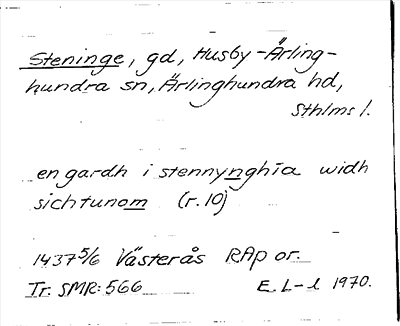 Steninge, gd, Husby-Ärling-
hundra sn, Ärlinghundra hd,
Sthlms l.
en gardh i stennynghía widh
sichtunom (r. 10)
1437 5/6 Västerås RAp or.
Tr. SMR: 566 E. L-l 1970.